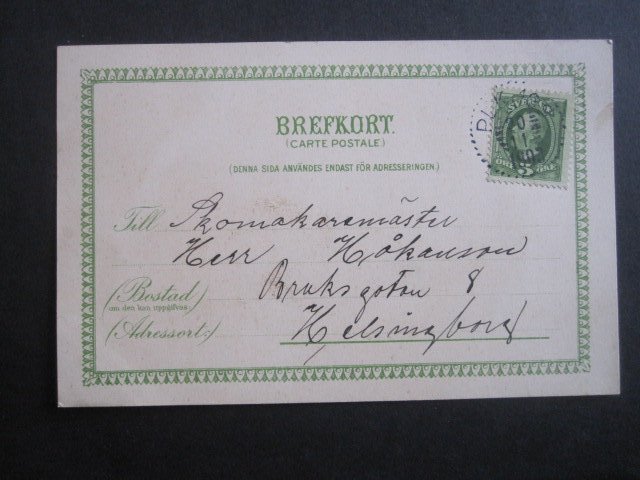 BREFKORT.
(CARTE POSTALE)
(DENNA SIDA ANVÄNDES ENDAST FÖR ADRESSERINGEN.)
SVERIGE
Till Skomakaremäster
Herr Håkanson
(Bostad)
om den kan uppgifvas.
Bruksgatan 8
(Adressort:)
Helsingborg